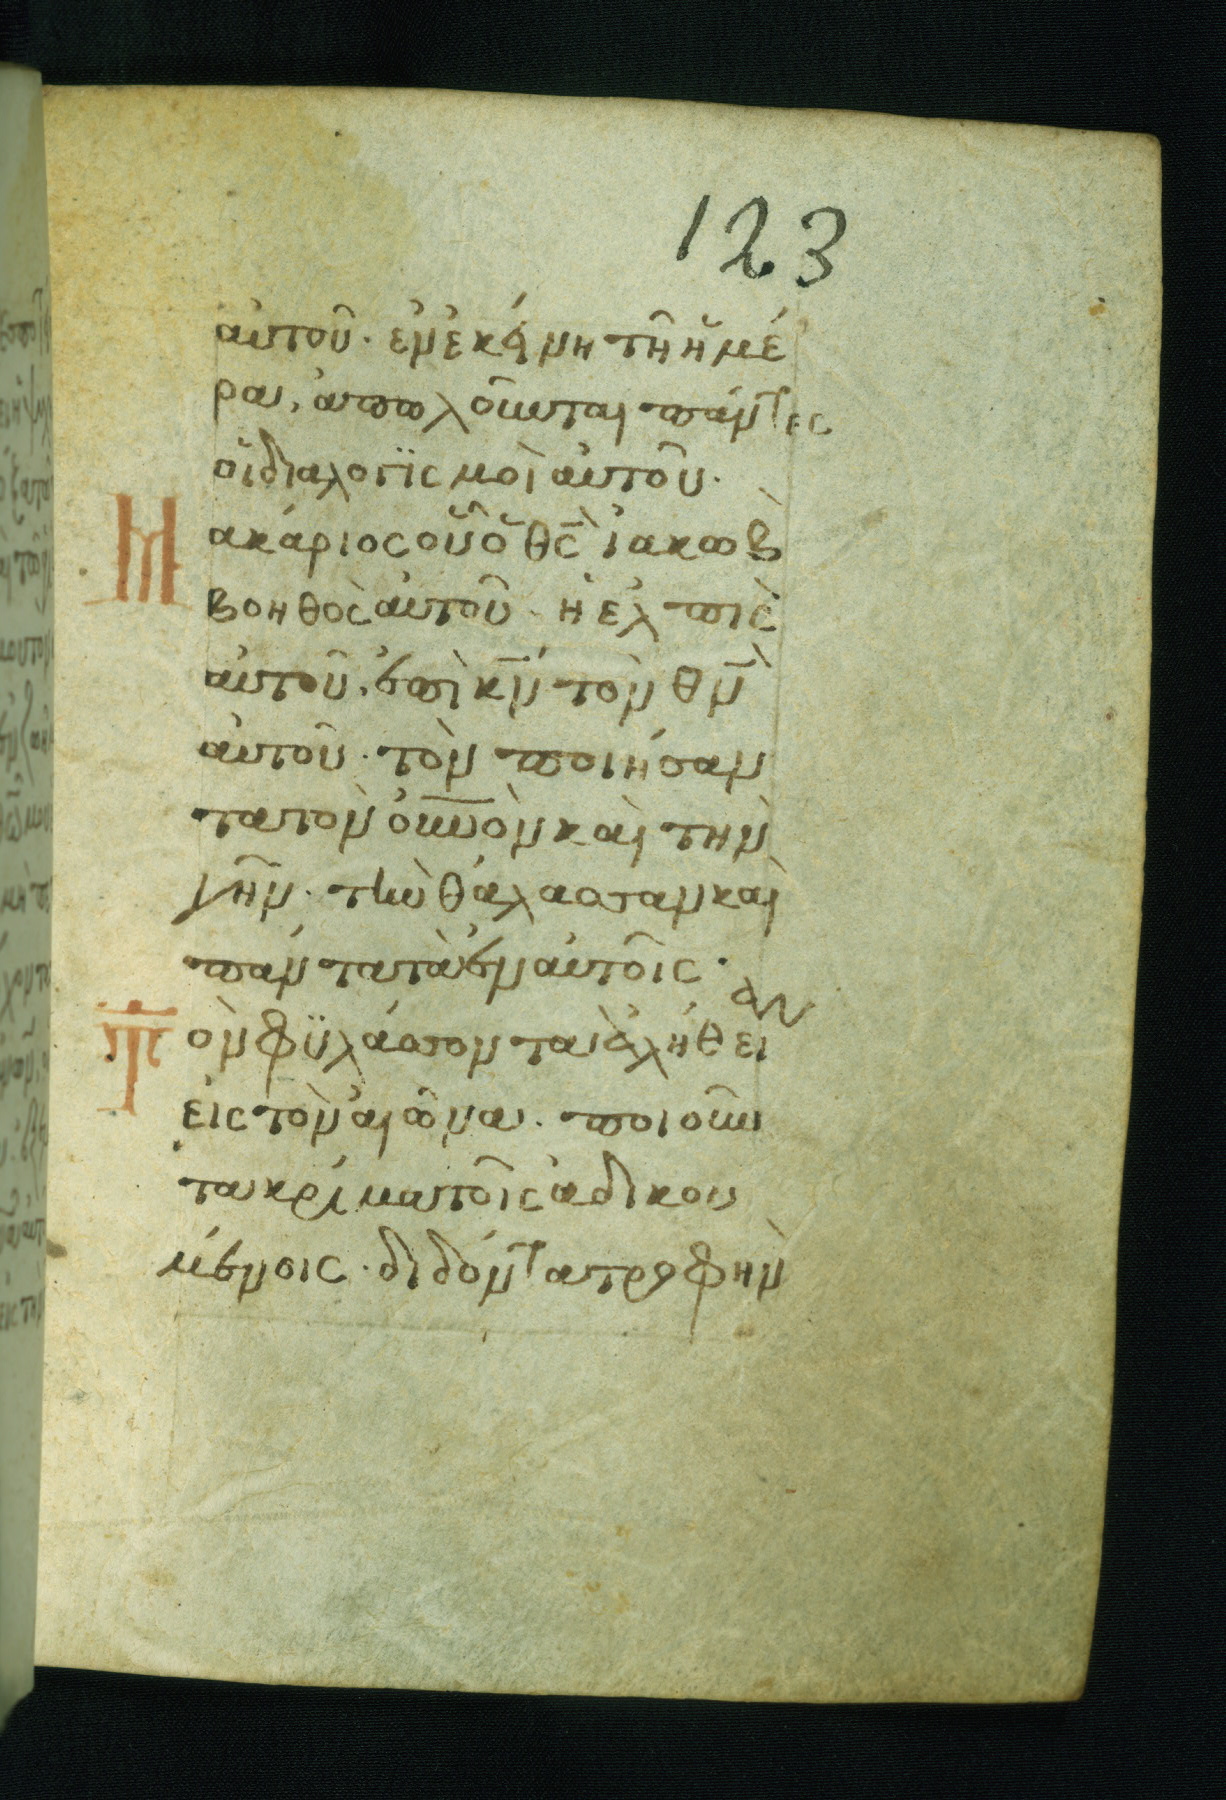 123
αὐτοῦ· ἐν ἐκείνη τῆ ἡμέ
ρα, ἀπολοῦνται πάντες
οἱ διαλογϊσμοὶ αὐτοῦ·
Μακάριος οὗ ὁ θς̅ ἰακὼβ
βοηθὸς αὐτοῦ· ἡ ἐλπὶς
αὐτοῦ, ἐπὶ κν̅ τὸν θν̅
αὐτοῦ· τὸν ποιήσαν
τα τὸν οὐνὸν καὶ τὴν
γῆν· τὴν θάλασσαν καὶ
πάντα τὰ ἐν αὐτοῖς·
Τὸν φϋλάσσοντα ἀλήθει
αν
εἰς τὸν αἰῶνα· ποιοῦν
τα κρίμα τοῖς ἀδικου
μένοις· διδόντα τροφὴν